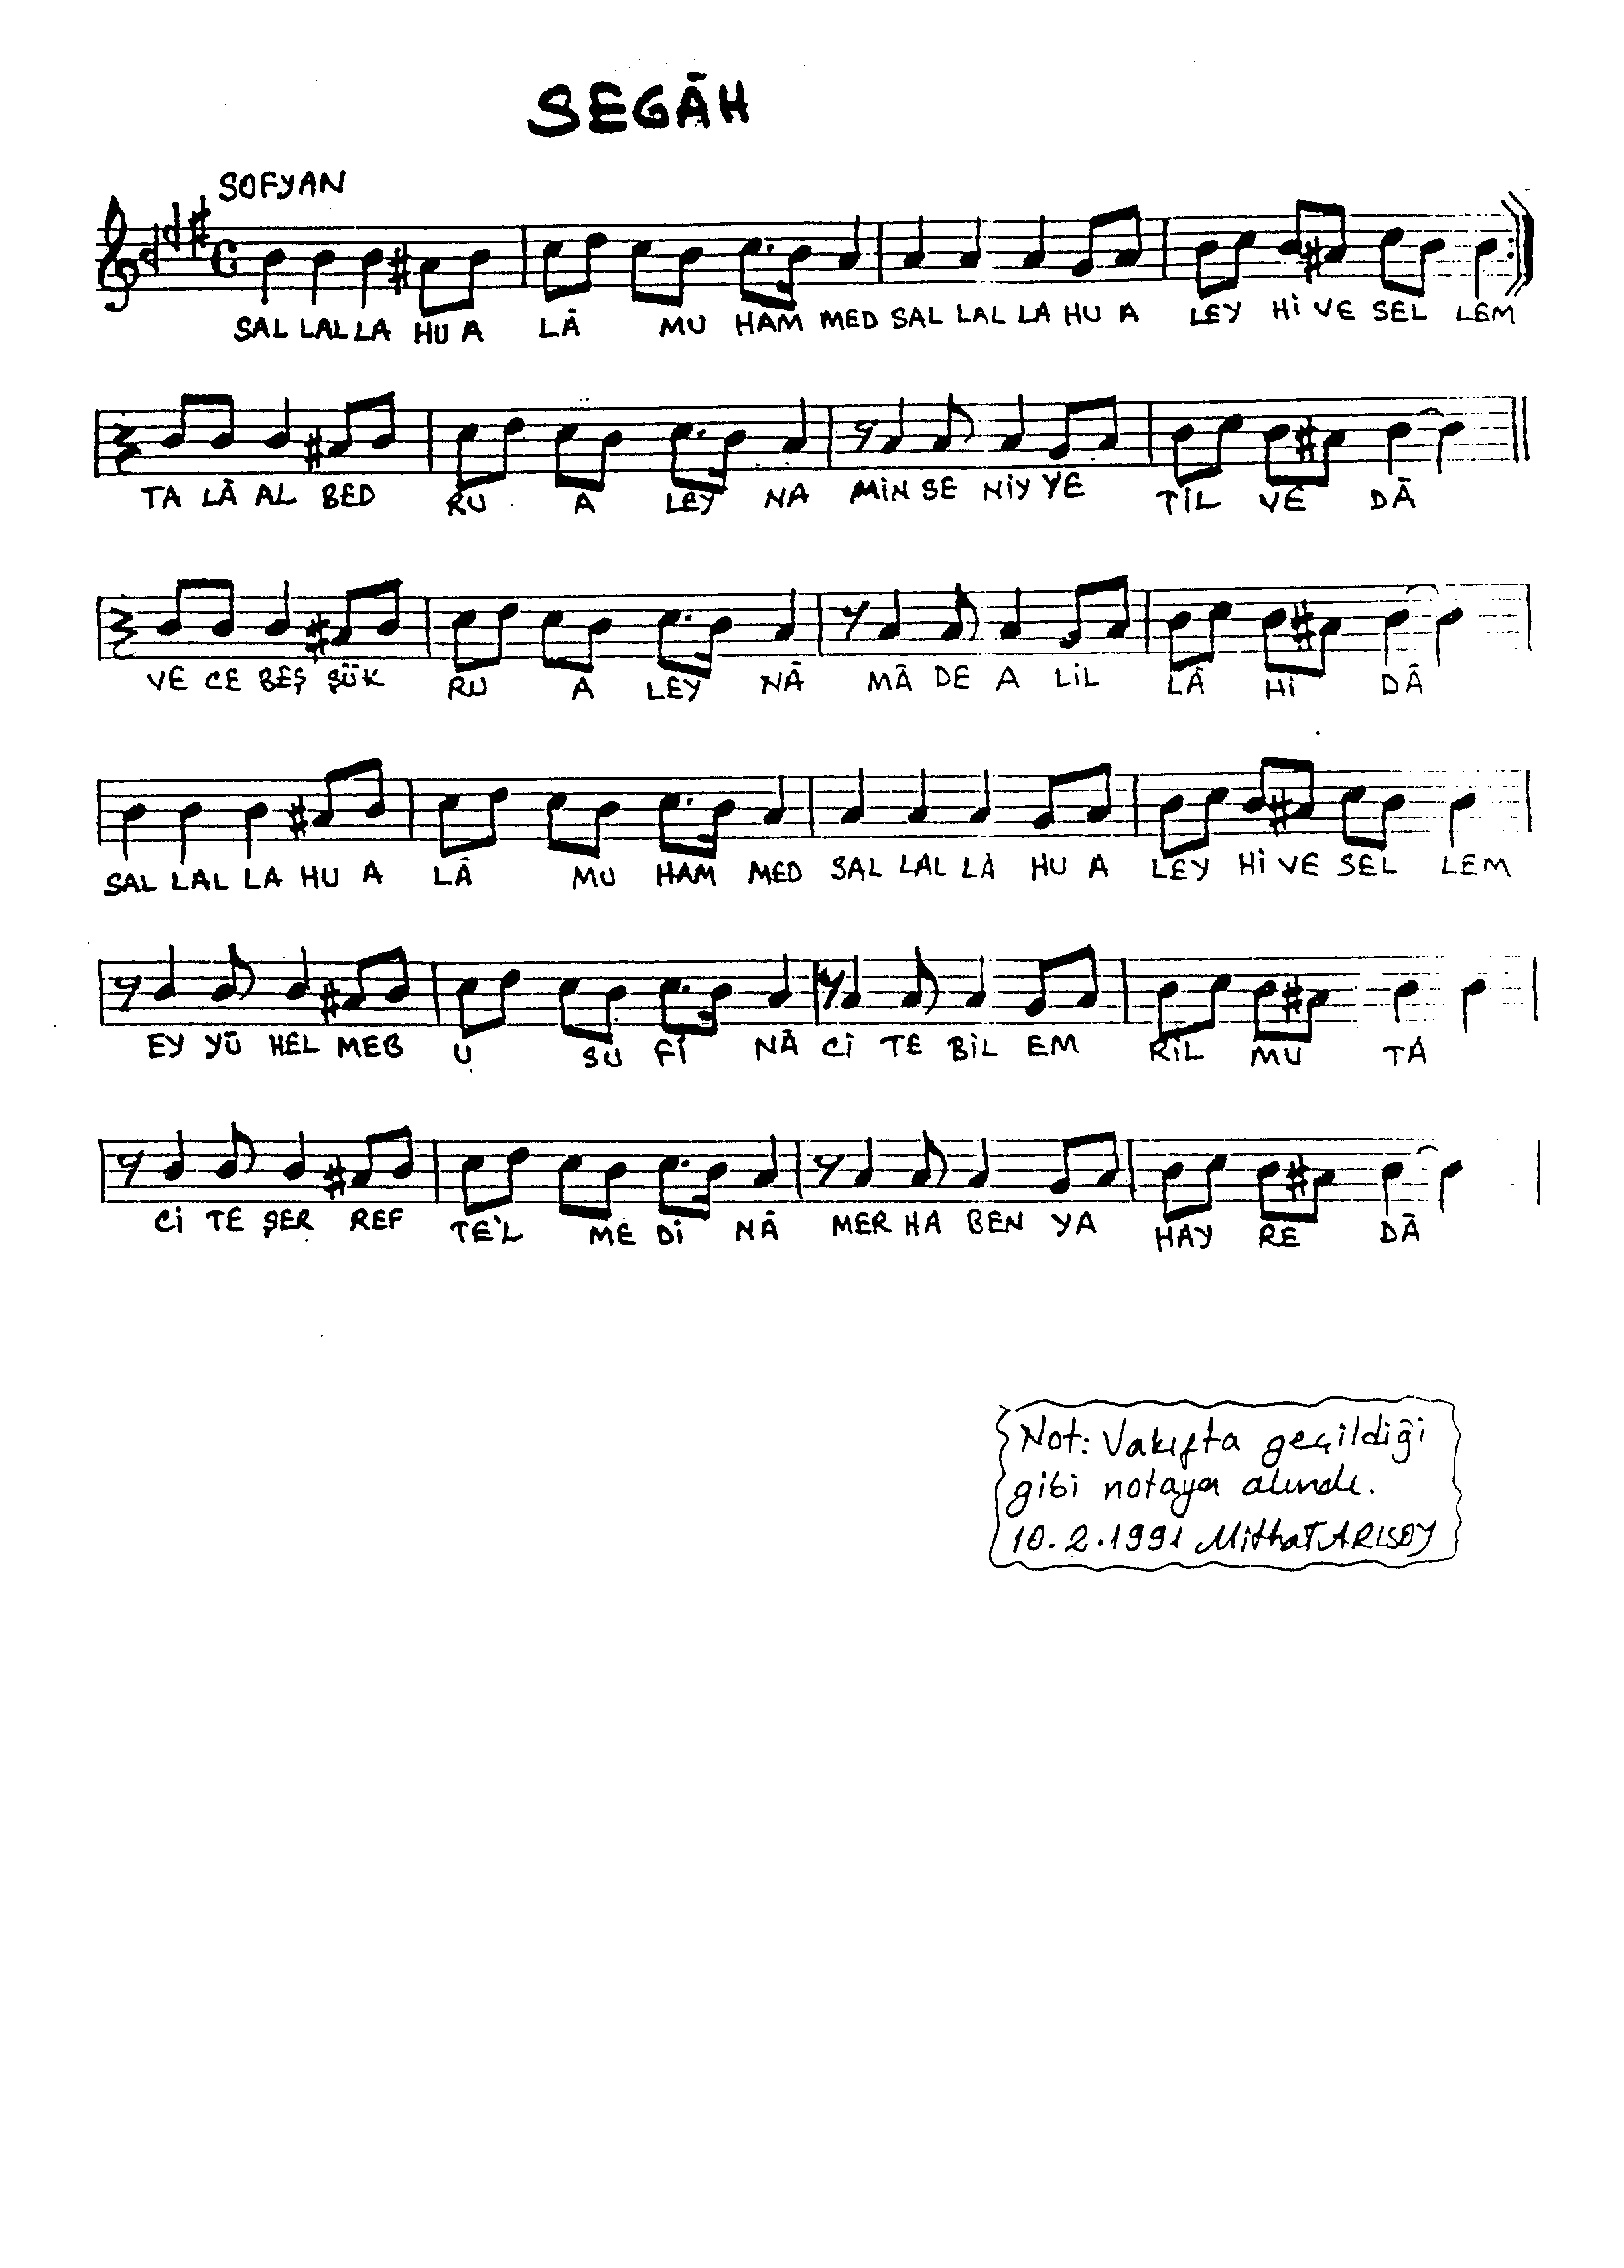 SEGÂH
SOFYAN
SAL LAL LA HU A LÂ MU HAM MED SAL LAL LA HU A LEY Hİ VE SEL LEM
TA LÂ AL BED RU A LEY NA MİN SE NİY YE TİL VE DÂ
VE CE BEŞ ŞÜK RU A LEY NÂ MÂ DE A LİL LÂ Hİ DÂ
SAL LAL LA HU A LÂ MU HAM MED SAL LAL LA HU A LEY Hİ VE SEL LEM
EY YÜ HEL MEB U SU Fİ NÂ Cİ TE BİL EM RİL MU TÂ
Cİ TE ŞER REF TE'L ME Dİ NÂ MER HA BEN YA HAY RE DÂ
Not: Vakıfta geçildiği
gibi notaya alındı.
10.2.1991 Mithat ARISOY